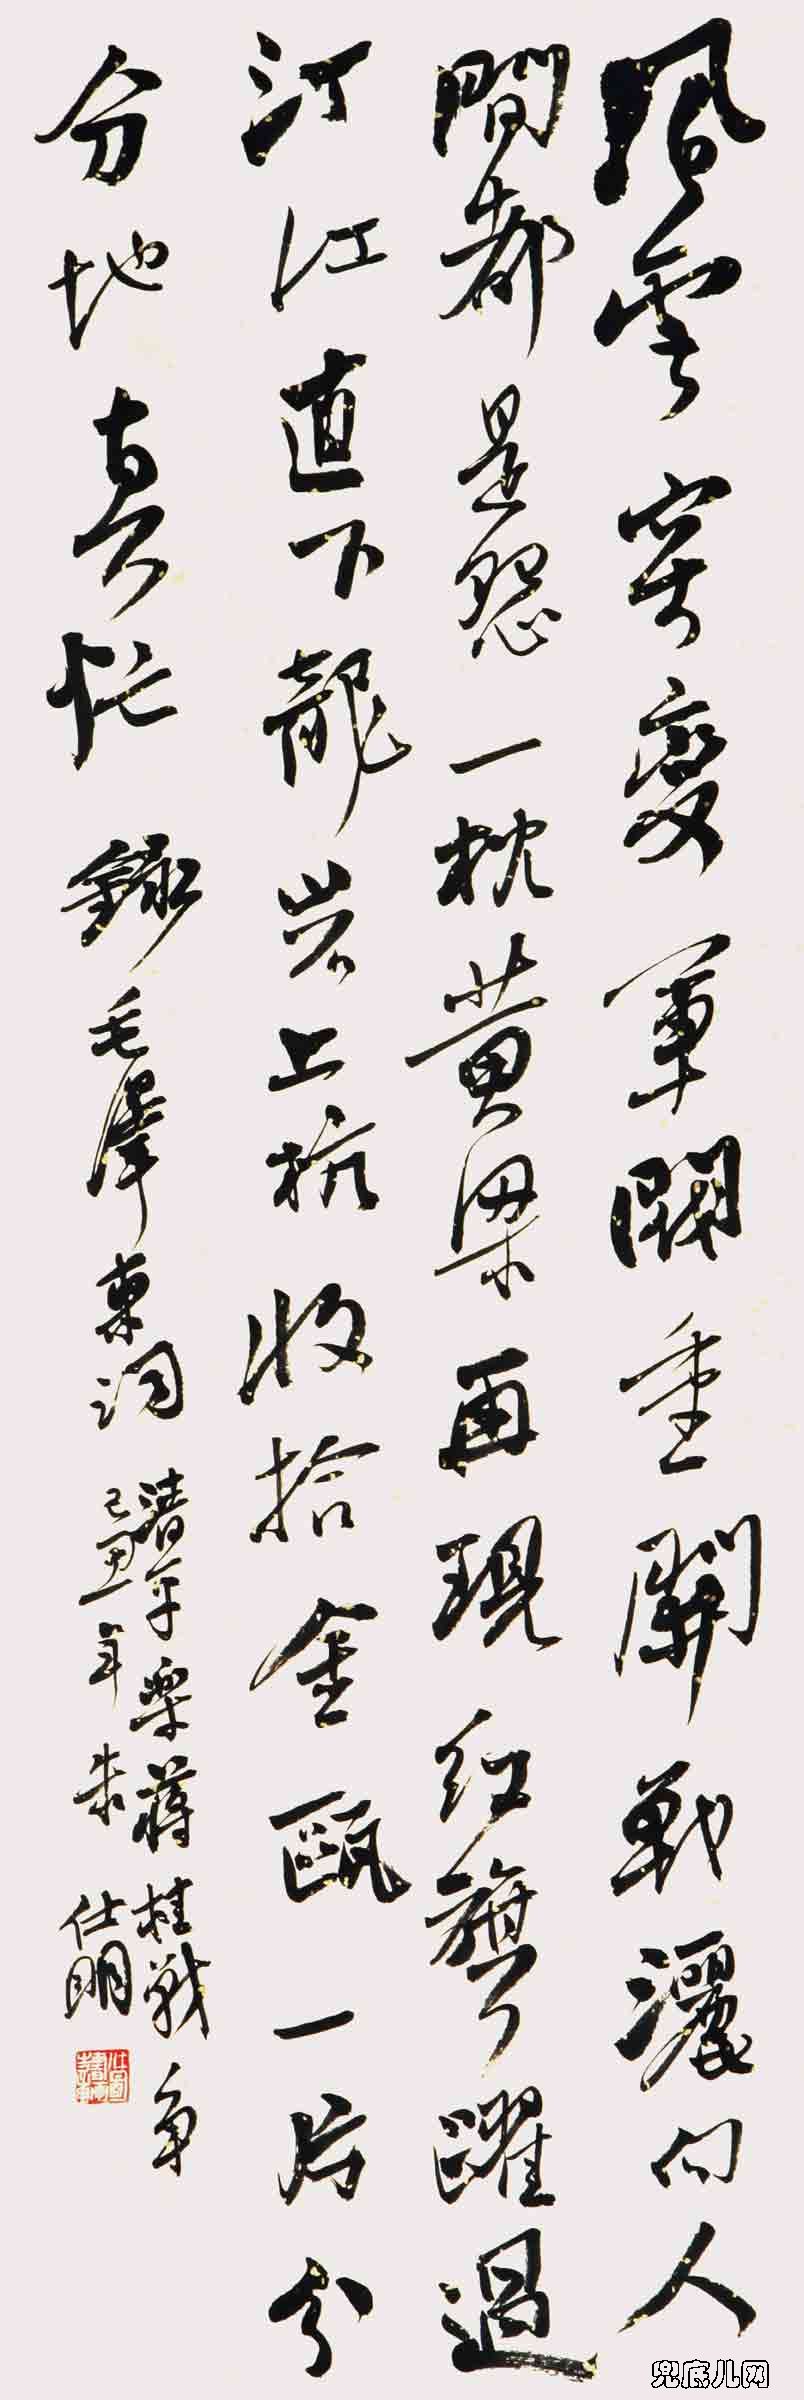 風雲突變軍閥重開戰灑向人
間都是怨一枕黄粱再現红旗躍過
汀江直下龍岩上杭收拾金甌一片分
分地真忙錄毛澤東詞
清平樂蔣桂戰争
己丑年朱仕明
兜底儿网